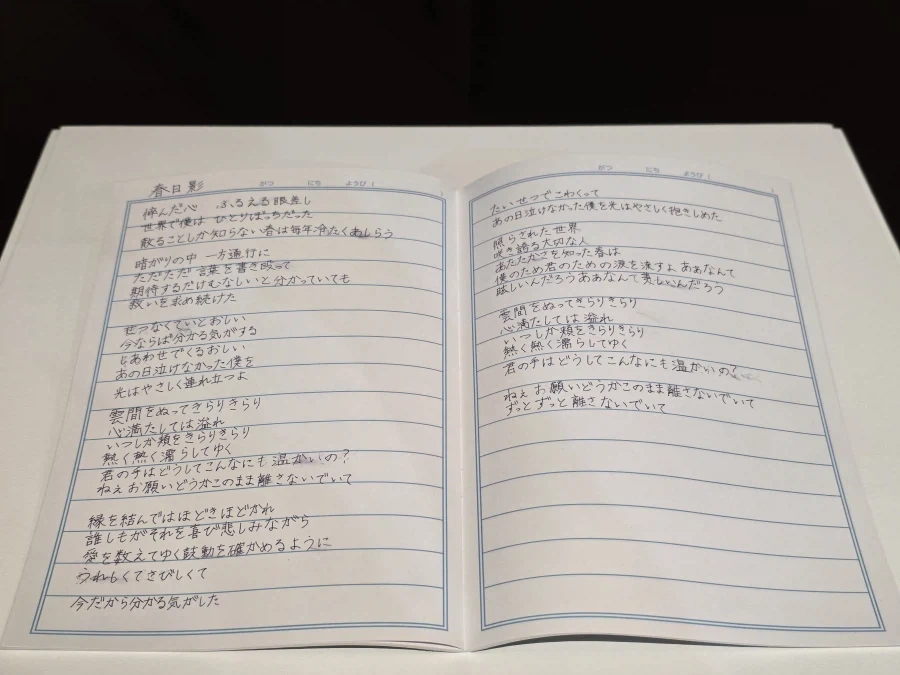 春日影
がつ にち ようび (
悴んだ心 ふるえる眼差し
世界で僕は ひとりぼっちだった
散ることしか知らない春は毎年冷たくあしらう
暗がりの中 一方通行に
ただただ 言葉を書き殴って
期待するだけむなしいと分かっていても
救いを求め続けた
せつなくていとおしい
今ならば分かる気がする
しあわせでくるおしい
あの日泣けなかった僕を
光はやさしく連れ立つよ
雲間をぬってきらりきらり
心満たしては溢れ
いつしか頬をきらりきらり
熱く熱く濡らしてゆく
君の手はどうしてこんなにも温かいの?
ねぇお願いどうかこのまま離さないでいて
縁を結んではほどきほどかれ
誰しもがそれを喜び悲しみながら
愛を数えてゆく鼓動を確かめるように
うれしくてさびしくて
今だから分かる気がした
がつ にち ようび (
たいせつでこわくって
あの日泣けなかった僕を光はやさしく抱きしめた
照らされた世界
咲き誇る大切な人
あたたかさを知った春は
僕のため君のための涙を流すよ あぁなんて
眩しいんだろうあぁなんて美しいんだろう
雲間をぬってきらりきらり
心満たしては溢れ
いつしか頬をきらりきらり
熱く熱く濡らしてゆく
君の手はどうしてこんなにも温かいの?
ねぇ お願いどうかこのまま離さないでいて
ずっとずっと離さないでいて